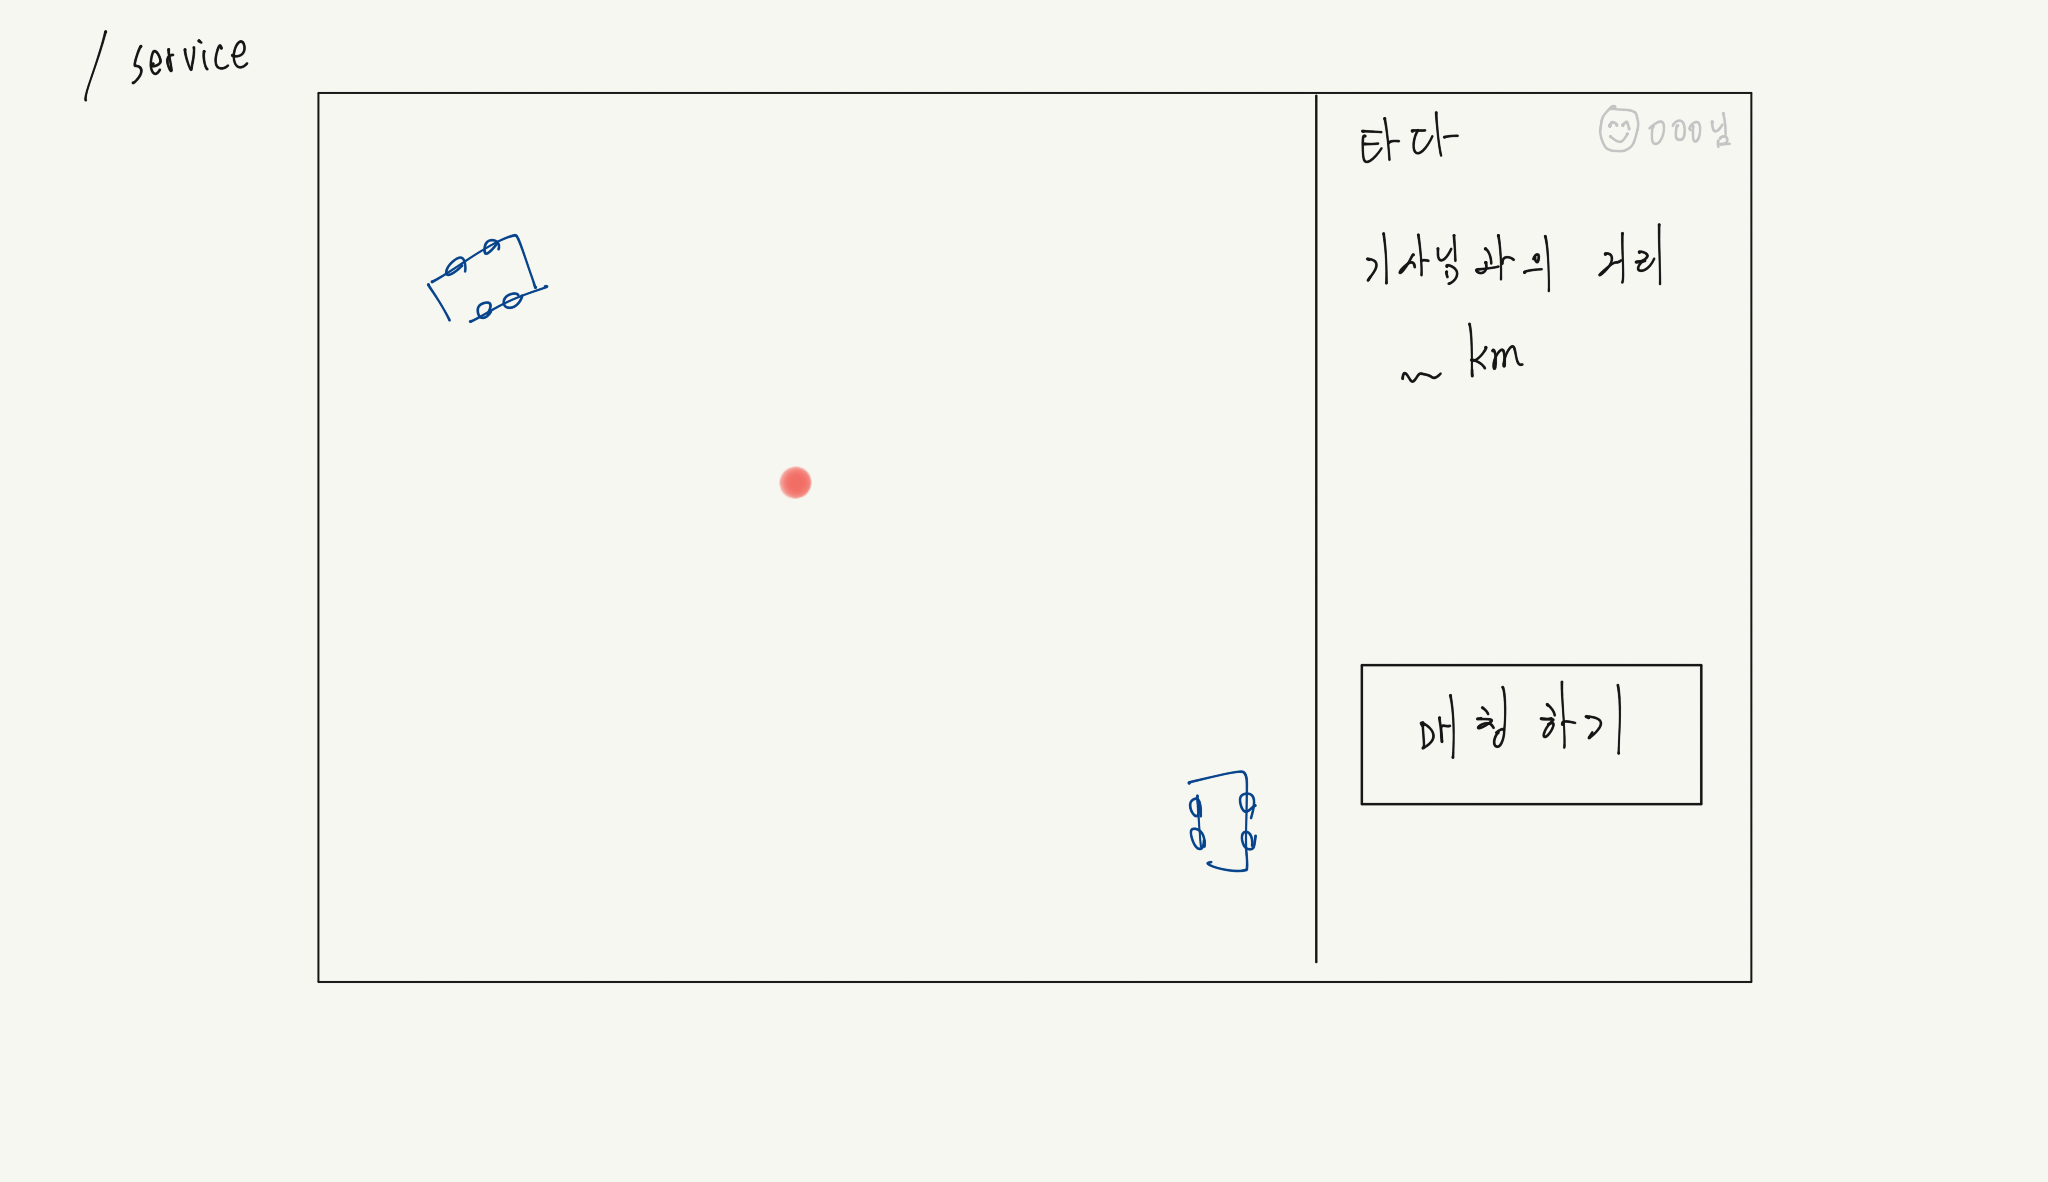 / service
타다
OOO님
기사님과의 거리
~ km
매칭하기